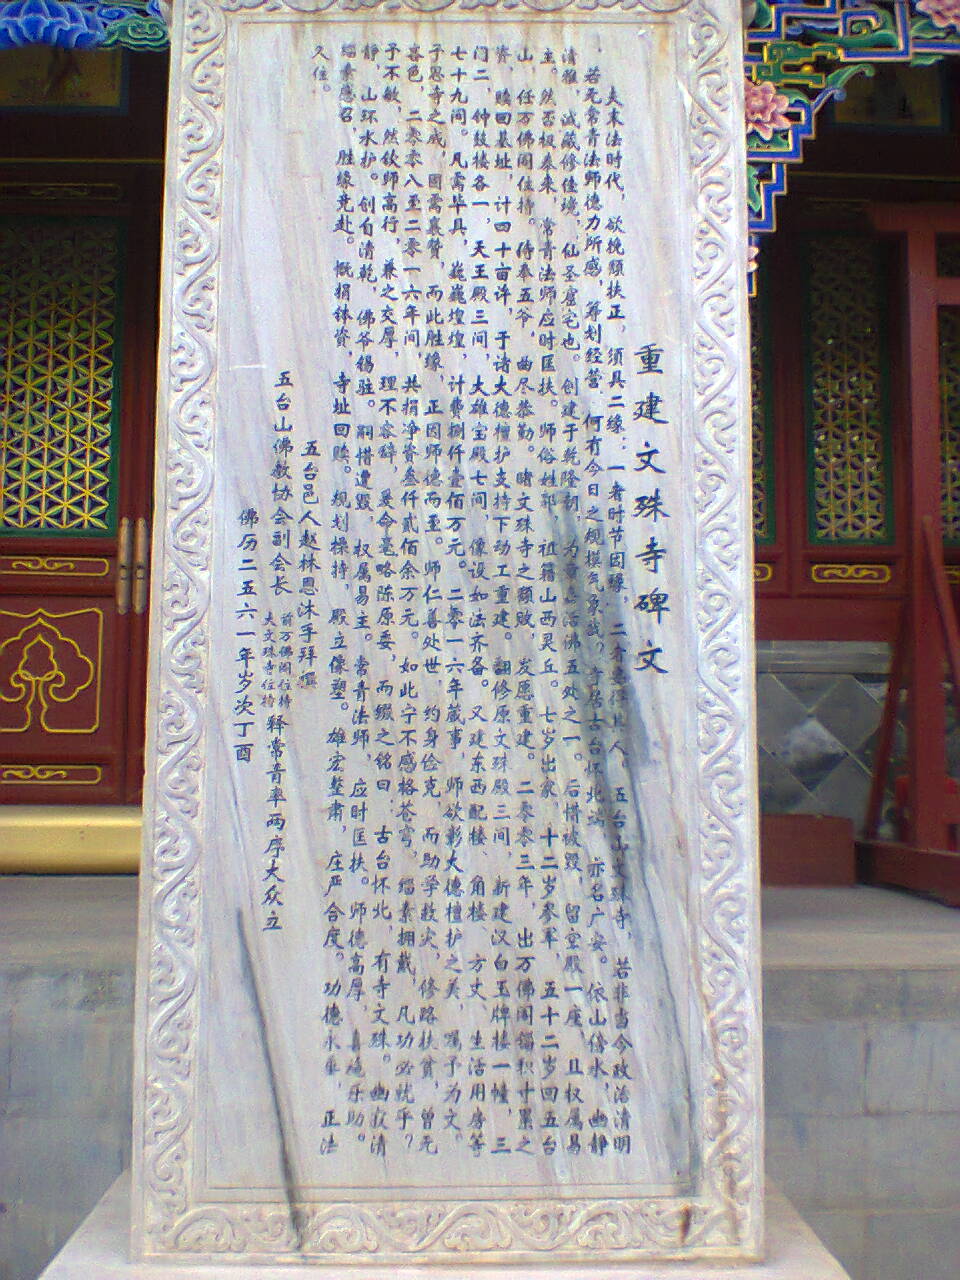 重建文殊寺碑文
夫末法时代，欲挽颓扶正，须具二缘：一者时节因缘，二者 人。五台山文殊寺，若非当今政治清明
，若无常青法师德力所感，筹划经营，何有今日之规模气象哉？寺居古台怀北端，亦名广安。依山傍水，幽静
清雅，诚藏修佳境，仙圣窟宅也。创建于乾隆初，为 活佛五处之一。后惜被毁，留空殿一座，且权属易
主。然否极泰来，常青法师应时匡扶。师俗姓郭，祖籍山西灵丘。七岁出家，十二岁参军，五十二岁回五台
山，任万佛阁住持。侍奉五爷，曲尽恭勤。睹文殊寺之颓败，发愿重建。二零零三年，出万佛阁锱积寸累之
资，赎回基址，计四十亩许，于诸大德檀护支持下动工重建。翻修原文殊殿三间，新建汉白玉牌楼一幢，三
门二，钟鼓楼各一，天王殿三间，大雄宝殿七间，像设如法齐备。又建东西配楼、角楼、方丈、生活用房等
七十九间。凡需毕具，巍巍煌煌，计费捌仟壹佰万元。二零一六年蒇事，师欲彰大德檀护之美，嘱予为文。
予思寺之成，固需襄赞，而此胜缘，正因师德而至。师仁善处世，约身俭克，而助学救灾，修路扶贫，曾无
吝色，二零零八至二零一六年间，共捐净资叁仟贰佰余万元。如此宁不感格苍穹，缁素拥戴，凡功必就乎？
予不敏，然钦师高行，兼之交厚，理不容辞，爰命毫略陈原委，而缀之铭曰：古台怀北，有寺文殊。幽寂清
静，山环水护。创自清乾，佛爷锡驻。嗣惜遭毁，权属易主。常青法师，应时匡扶。师德高厚，喜 乐助。
缁素感召，胜缘竞赴。慨捐钵资，寺址回赎。规划操持，殿立像塑。雄宏整肃，庄严合度。功德永垂，正法
久住。
五台邑人赵林恩沐手拜撰
五台山佛教协会副会长 前万佛阁住持 大文殊寺住持 释常青率两序大众立
佛历二五六一年岁次丁酉